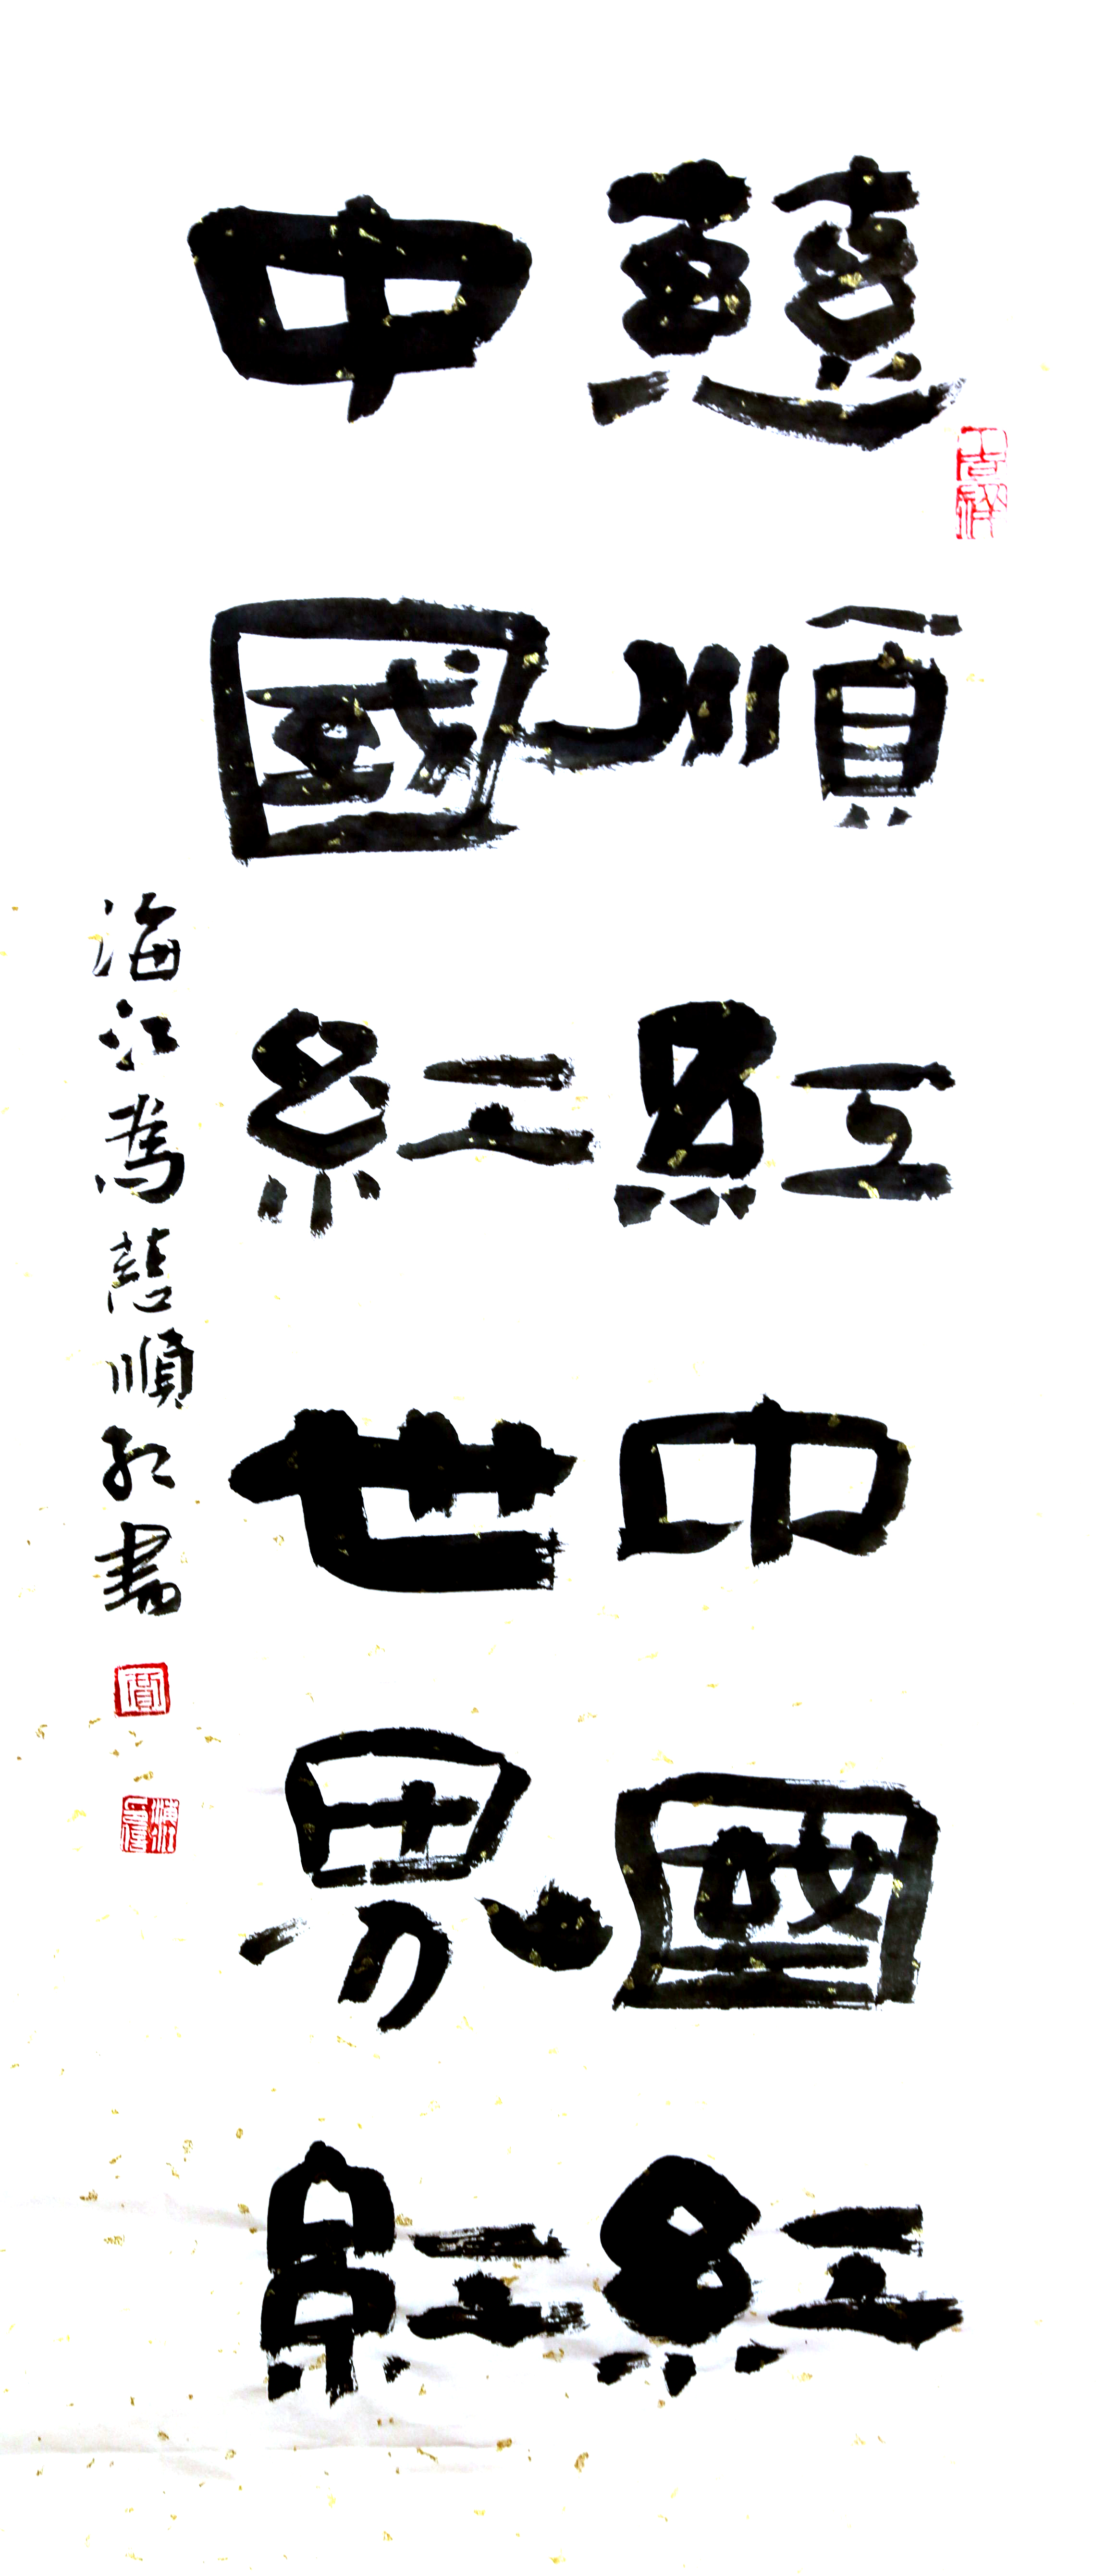 順紅中國紅
中國紅世界紅
海江為順紅書